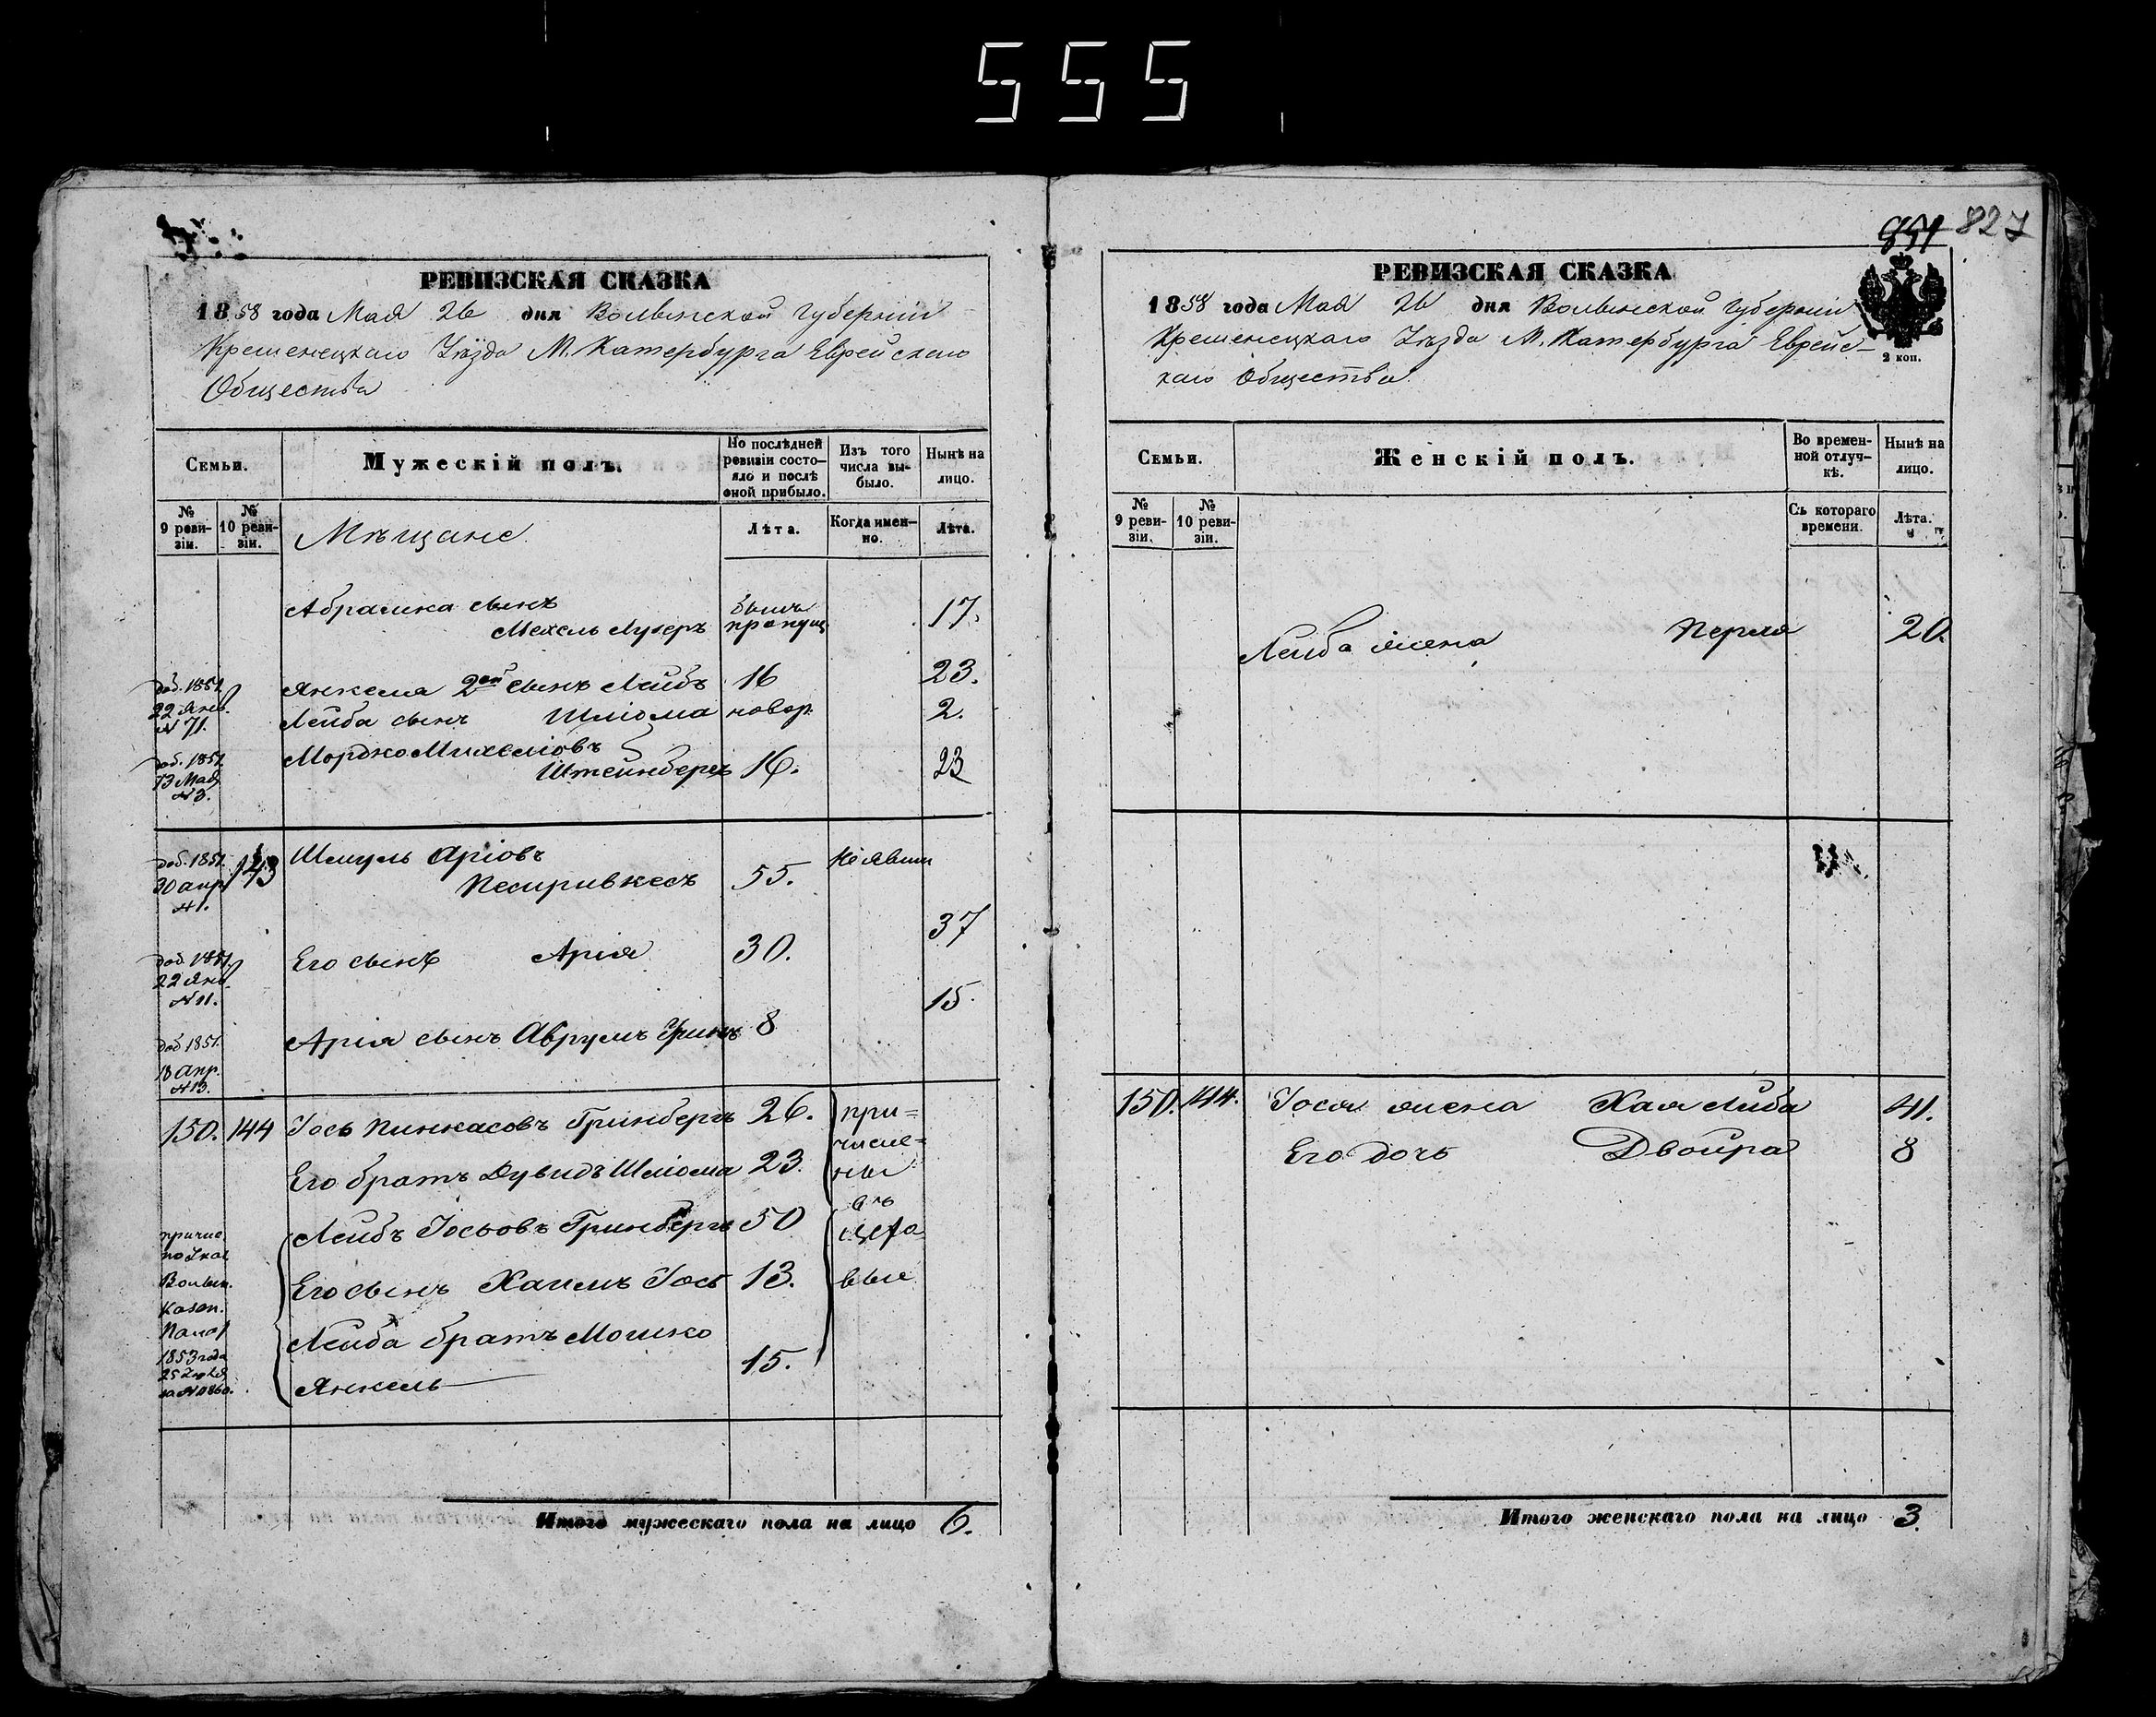 555
РЕВИЗСКАЯ СКАЗКА
1858 года Мая 26 дня Волынской Губерніи
Кременецкаго Уѣзда М. Катербурга Еврейскаго
Общества
Семьи.
Мужескій полъ.
По послѣдней ревизіи состояло и послѣ оной прибыло.
Изъ того числа выбыло.
Нынѣ на лицо.
№ 9 ревизіи.
№ 10 ревизіи.
Мѣщане
Лѣта.
Когда именно.
Лѣта.
Абрамка сынъ
Мехель Лузеръ былъ пропущ. 17.
доб. 1851 22 Янв. № 71. Янкеля 2ой сынъ Лейбъ 16 23.
Лейба сынъ Шліома новор. 2.
доб. 1851 13 Мая № 3. Мордко Михеліовъ
Штейнбергъ 16. 23
доб. 1851. 30 апр. № 1. 143 Шмуль Аріовъ
55. Не явил
Его сынъ Арія 30. 37
доб. 1851. 22 Янв. № 11.
Арія сынъ Аврумъ 8 15.
доб 1851. 18 Апр. № 13.
150. 144 Іось Пинкасовъ Гринбергъ 26. причисле-
Его братъ Дувидъ Шліома 23. ны
въ
Лейбъ Іосьовъ Гринбергъ 50
Его сынъ Хаимъ Іось 13.
Лейба братъ Мошко
Янкель 15.
причис. по Указ. Волын. Казен. Палат 1853 года
Итого мужескаго пола на лицо 6.
827
РЕВИЗСКАЯ СКАЗКА
1858 года Мая 26 дня Волынской Губерніи
Кременецкаго Уѣзда М. Катербурга Еврейс-
каго Общества
2 коп.
Семьи.
Женскій полъ.
Во временной отлучкѣ.
Нынѣ на лицо.
№ 9 ревизіи.
№ 10 ревизіи.
Съ котораго времени.
Лѣта.
Лейба жена Перля 20.
150. 144. Іося жена Хая Либа 41.
Его дочь Двойра 8
Итого женскаго пола на лицо 3.